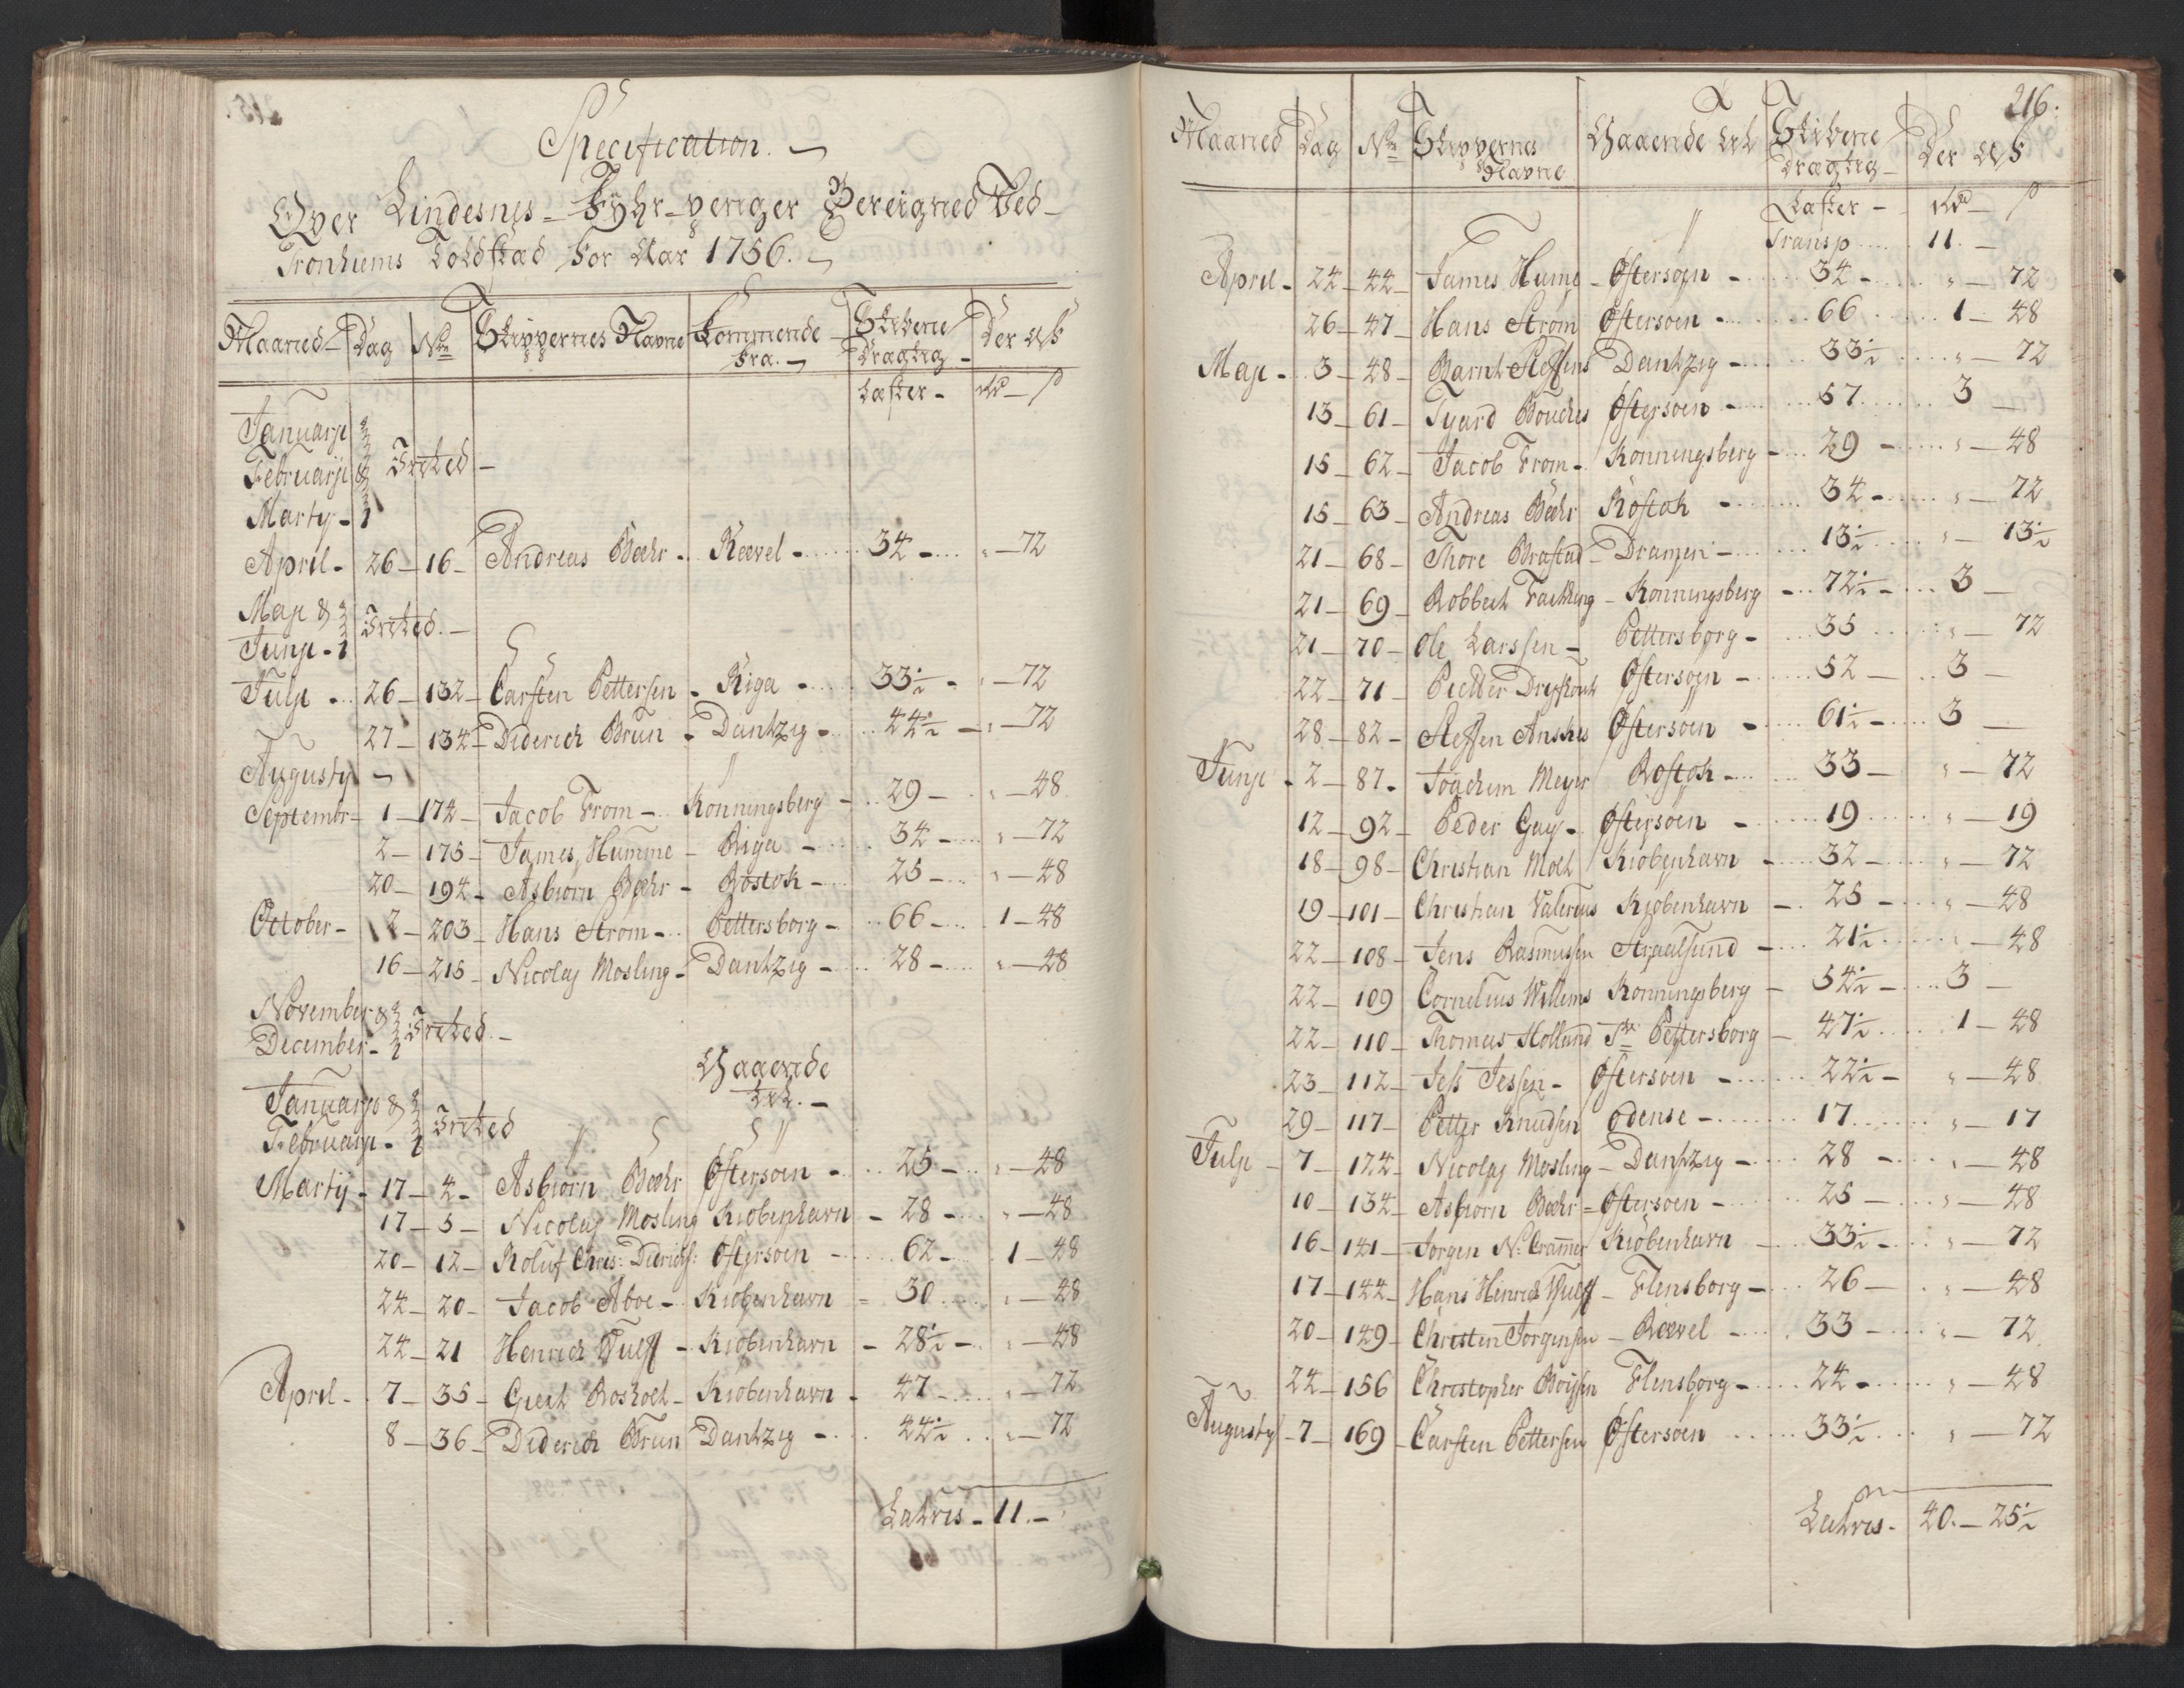 Specification.
Over Lindesnes Fyhr-penger Bereigned Ved
Tronhiems Toldsted for Aar 1756.
Maaned Dag No Skippernes Navne Kommende fra. Skibene Drægtig Der Af
Læster - Rd - ß
Januarji
Februarji & Intet
Marty
April - 26 - 16 - Andreas Bæhr - Rævel - 34 - " - 72
Maji &
Junji Intet.
Julji - 26 - 132 - Carsten Pettersen - Riga - 33½ - " - 72
27 - 134 - Diderich Brun - Dantzig - 44½ - " - 72
Augusty -
Septembr - 1 - 174 - Jacob From - Konningsberg - 29 - " - 48
2 - 175 - James Humme - Riga - 34 - " - 72
20 - 194 - Asbiørn Bæhr - Rostok - 25 - " - 48
October - 2 - 203 - Hans Strøm - Pettersborg - 66 - 1 - 48
16 - 215 - Nicolaj Mosling - Dantzig - 28 - " - 48
November &
December - Intet
Udgaaende
til. -
Januarji &
Februarji - Intet
Martij - 17 - 4 - Asbiørn Bæhr Østersøen - 25 - " - 48
17 - 5 - Nicolaj Mosling Kiøbenhavn - 28 - " - 48
20 - 12 - Roluf Chris: Dierichs: Østersøen - 62 - 1 - 48
24 - 20 - Jacob Aboe - Kiøbenhavn - 30 " - 48
24 - 21 Henrich Wulff - Kiøbenhavn - 28½ - " - 48
April - 7 - 35 - Giert Bosholt - Kiøbenhavn - 47 - " - 72
8 - 36 - Diderich Brun Dantzig - 44½ " - 72
Lateris - 11. -
216.
Maaned Dag No Skippernes Navne Udgaaende til Skibene Drægtig Der Af
Læster - Rd - ß
Transp 11. -
April - 24 - 44 - James Hume - Østersøen - 34 - " - 72
26 - 47 - Hans Strøm Østersøen - 66 1 - 48
Maji - 3 - 48 - Barnt Steffens Dantzig - 33½ " - 72
13 - 61 - Tyard Bouches Østersøen - 57 3 -
15 - 62 - Jacob From - Konningsberg - 29 - " - 48
15 - 63 - Andreas Bæhr Rostok - 34 - " - 72
21 - 68 - Thore Brastad - Dramen - 13½ " - 13½
21 - 69 - Robbert Faithing - Konningsberg - 72½ - 3 -
21 - 70 - Ole Larssen - Pettersborg - 35 " - 72
22 - 71 - Pietter Dryfhout Østersøen - 52 - 3 -
28 - 82 - Steffen Anskes Østersøen - 61½ - 3 -
Junji - 2 - 87 - Jogchim Meyer Rostok - 33 - " - 72
12 - 92 - Peder Gay - Østersøen - 19 " - 19
18 - 98 - Christian Molt Kiøbenhavn - 32 - " - 72
19 - 101 - Christian Valerius Kiøbenhavn - 25 - " - 48
22 - 108 - Jens Rasmussen Straalsund - 21½ " - 48
22 - 109 Cornelius Willems Konningsberg - 54½ - 3 -
22 - 110 - Thomas Holland St Pettersborg - 47½ 1 - 48
23 - 112 - Jess Jessen - Østersøen - 22½ - " - 48
29 - 117 - Petter Knudsen Odense - 17 " - 17
Julji - 7 - 124 - Nicolaj Mosling - Dantzig - 28 - " - 48
10 - 134 - Asbiørn Bæhr - Østersøen - 25 - " - 48
16 - 141 - Jørgen N: Cramer Kiøbenhavn - 33½ - " - 72
17 - 144 - Hans Hinrich Wulff - Flensborg - 26 - " - 48
20 - 149 - Christen Jørgensen - Rævel - 33 - " - 72
24 - 156 Christopher Boysen Flensborg - 24 - " - 48
Augusty - 7 - 169 - Carsten Pettersen Østersøen 33½ " - 72
Lateris - 40. - 25½